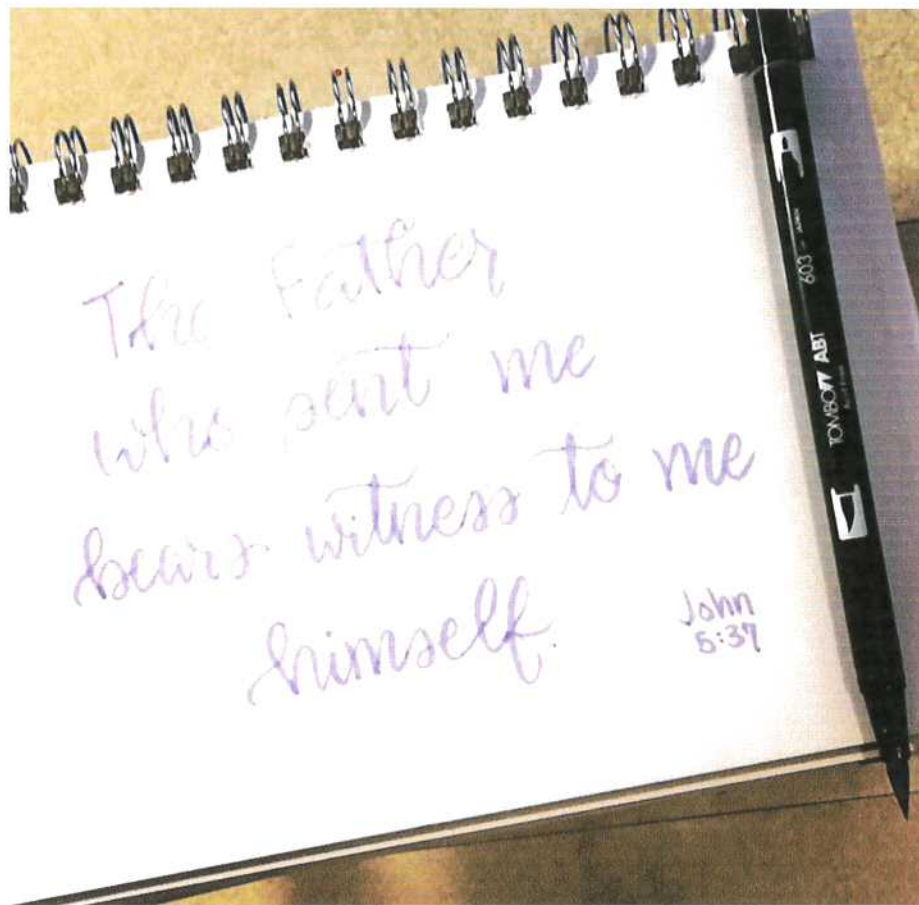 The Father
who sent me
bears witness to me
himself.
John
5:37
603
TOMBOW ABT